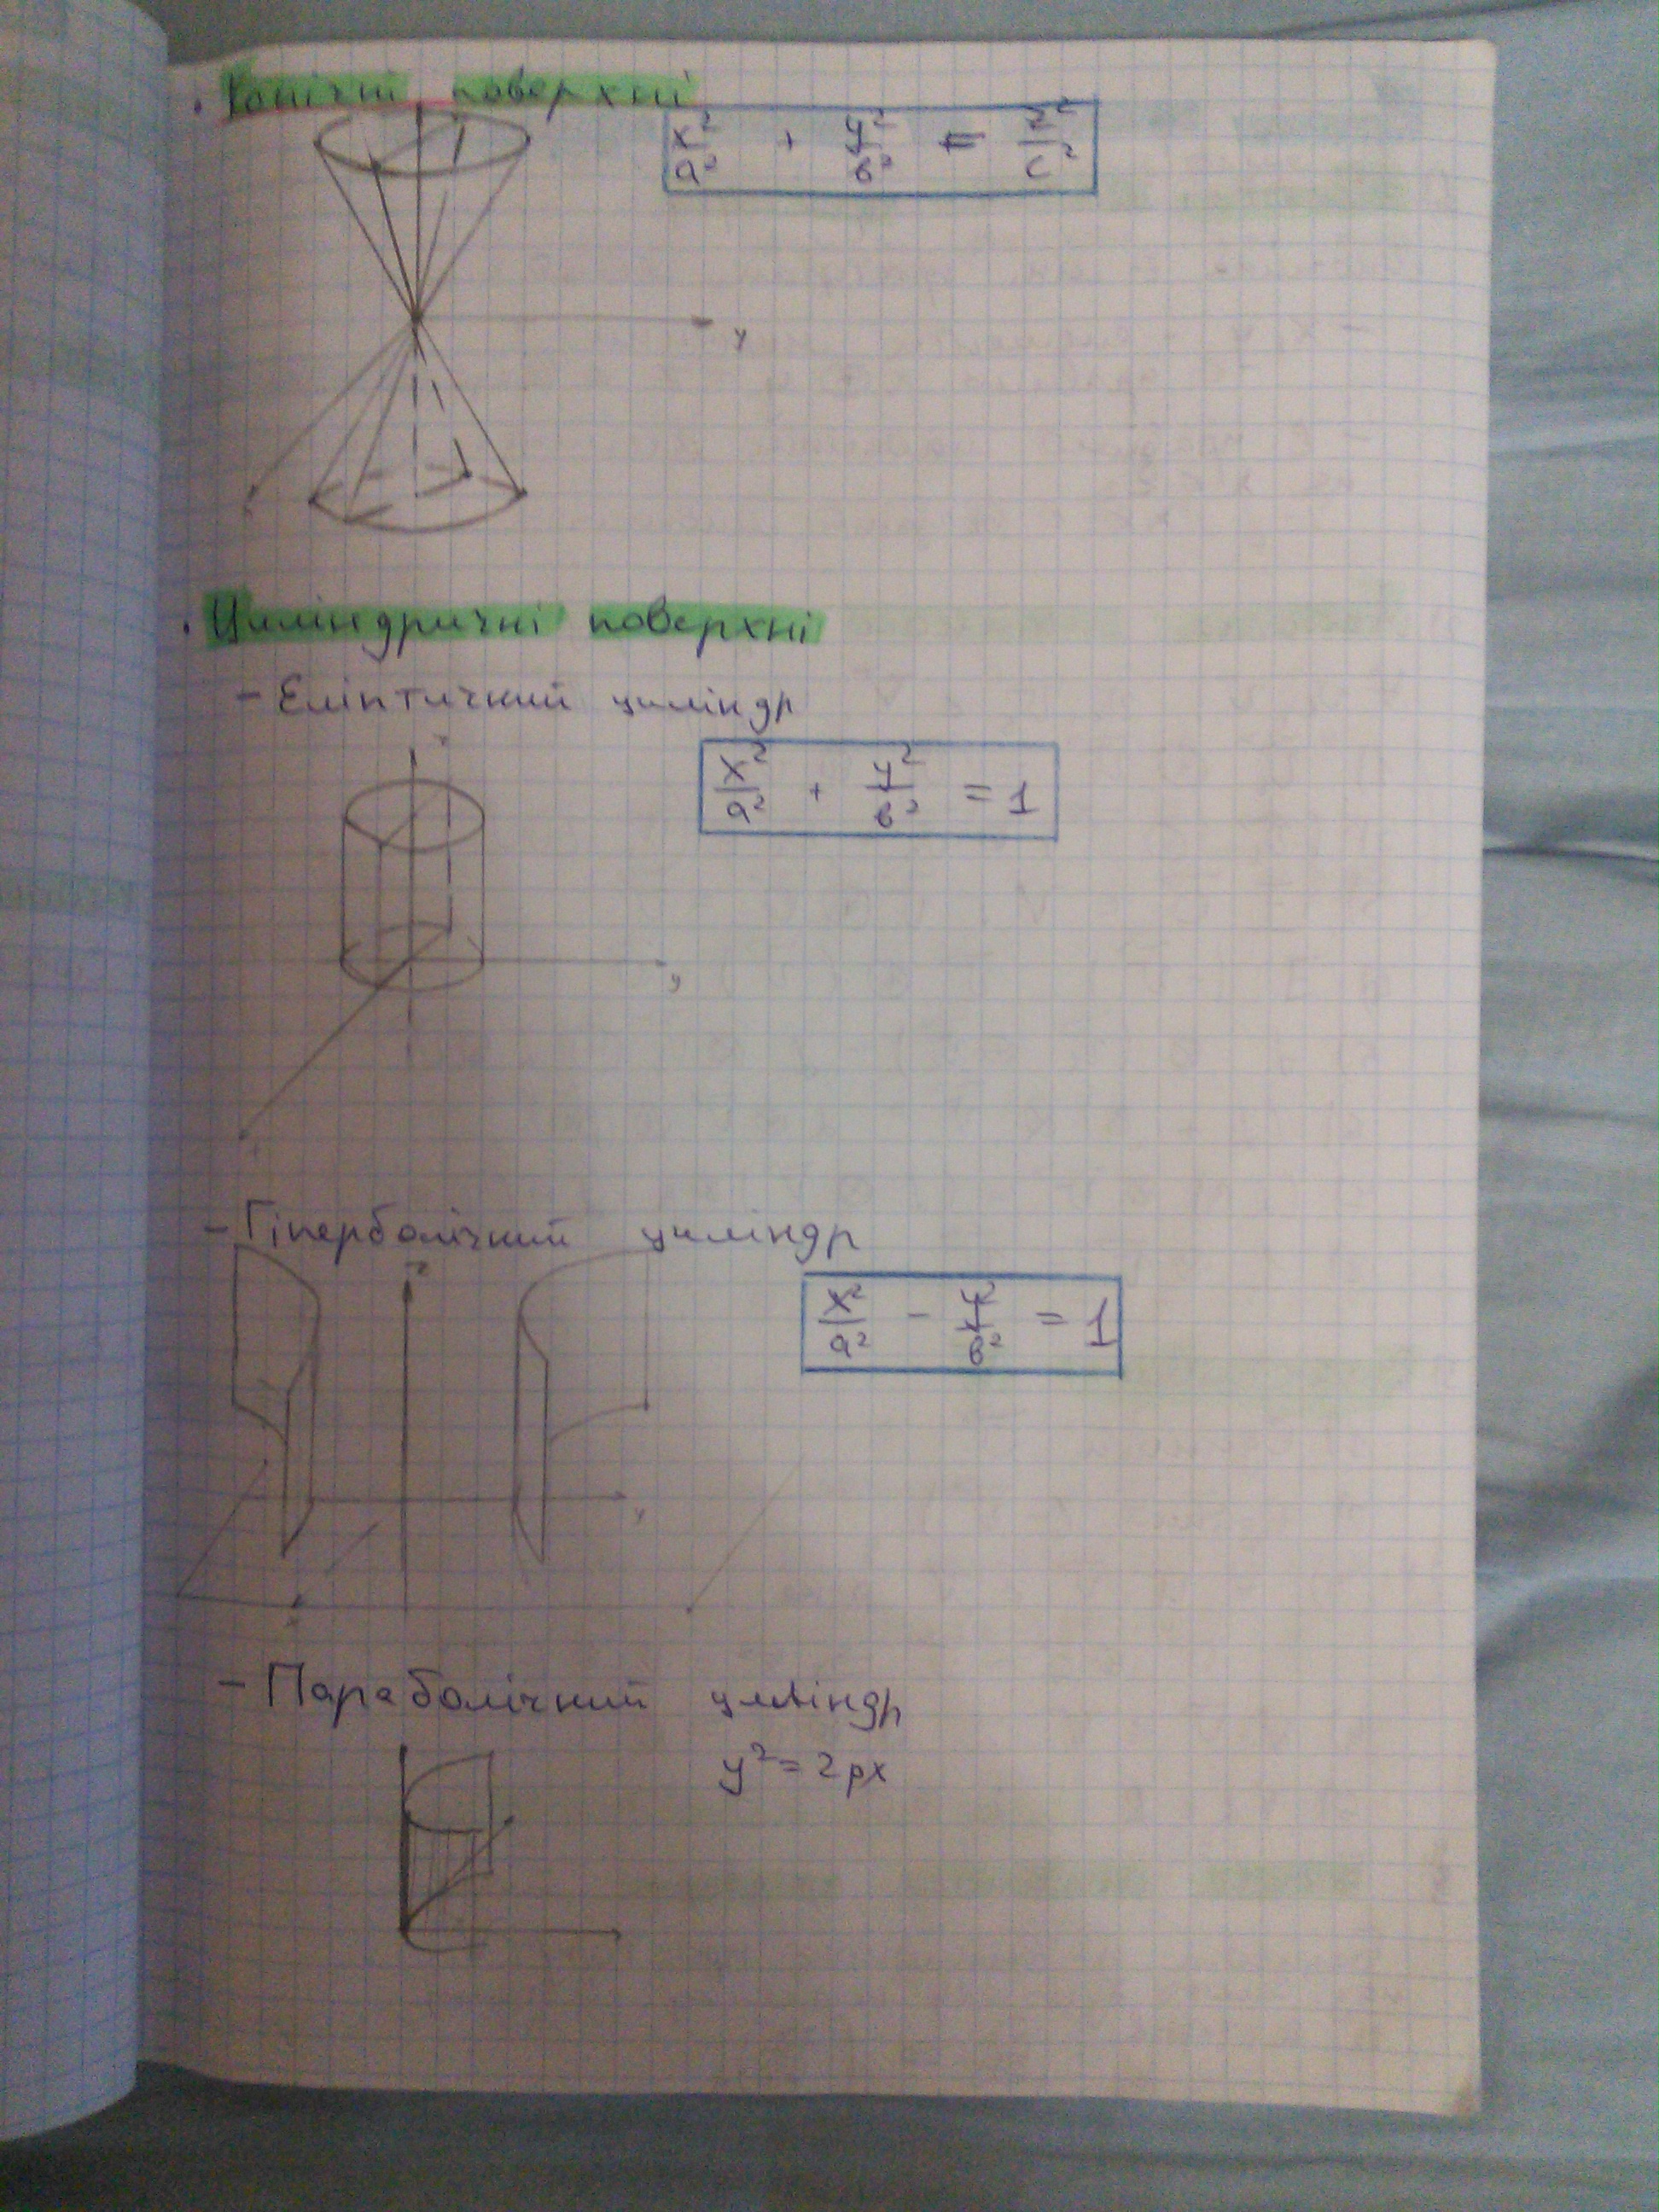 . Конічні поверхні
x²/a² + y²/b² = z²/c²
y
. Циліндричні поверхні
- Еліптичний циліндр
x²/a² + y²/b² = 1
y
- Гіперболічний циліндр
z
x²/a² - y²/b² = 1
y
- Параболічний циліндр
y² = 2px